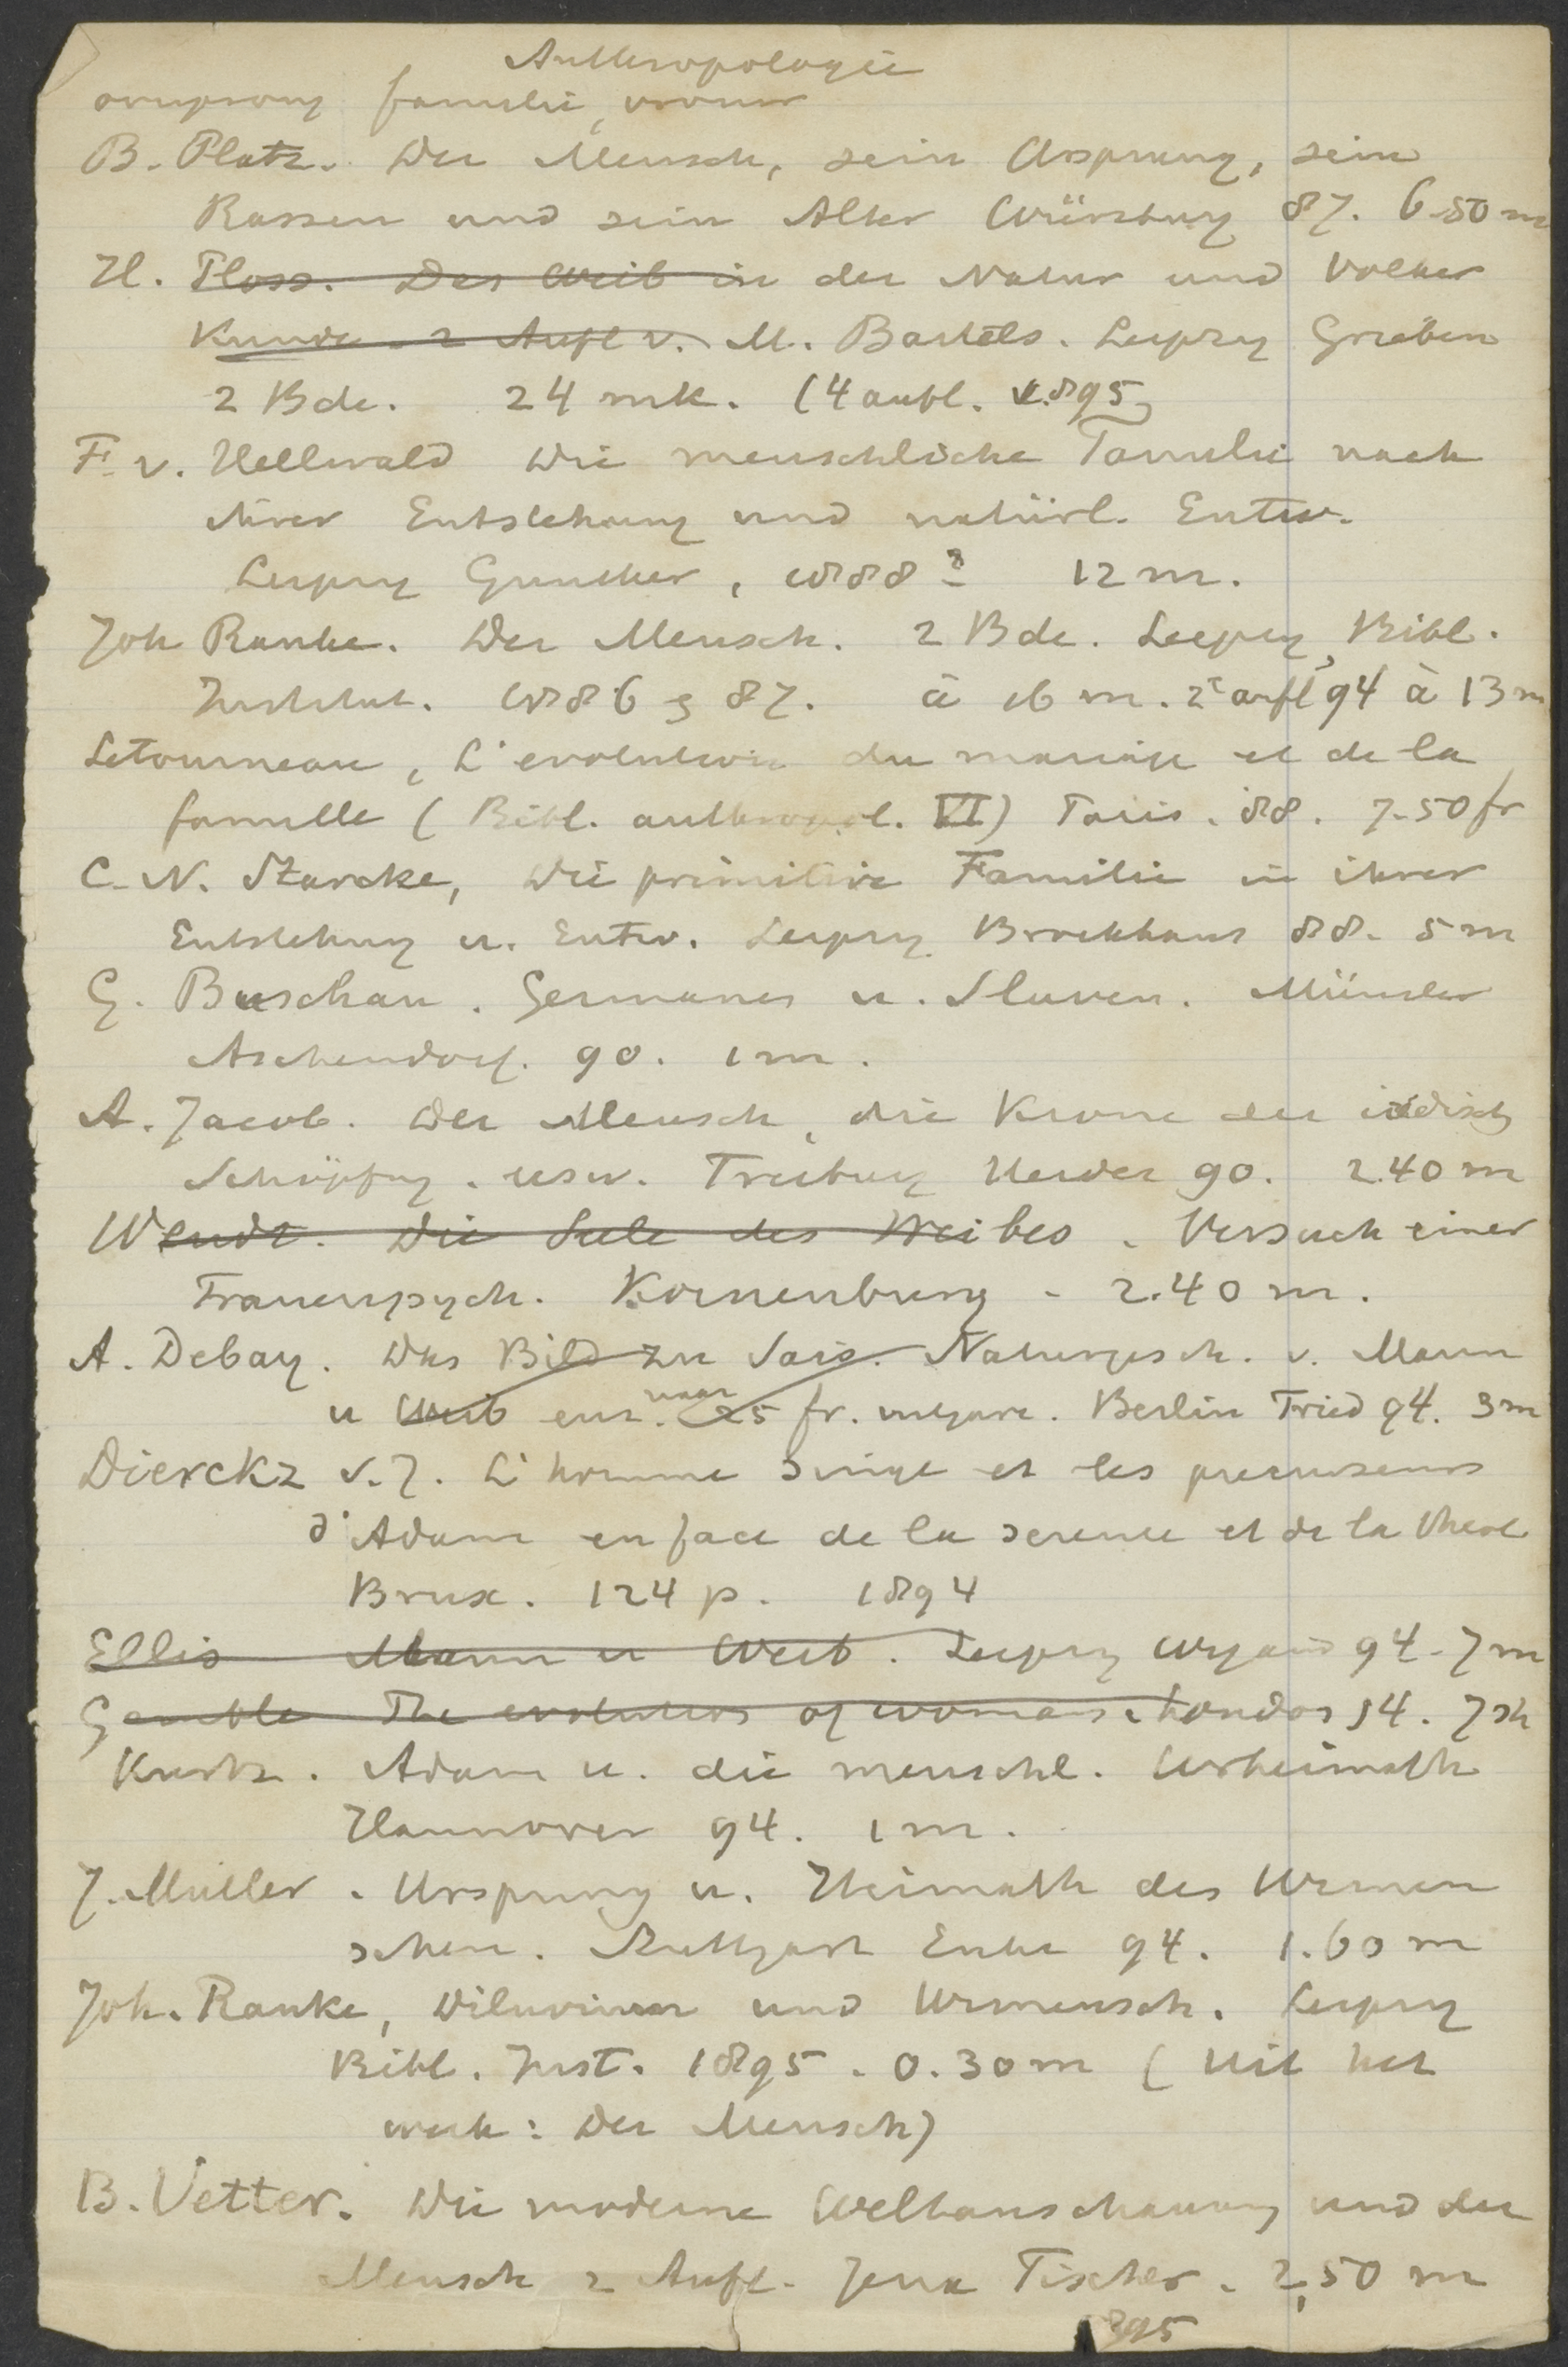 Anthropologie
oorsprong familie, vrouw
B. Platz. Der Mensch, sein Ursprung, seine
Rassen und sein Alter Würzburg 87. 6.50 m
H. Ploss. Das Weib in der Natur und Völker
Kunde. 2 Aufl v. M. Bartels. Leipzig Grieben
2 Bde. 24 mk. (4 aufl. 1895)
F. v. Hellwald Die menschliche Familie nach
ihrer Entstehung und natürl. Entw.
Leipzig Gunther, 1888 12 m.
Joh Ranke. Der Mensch. 2 Bde. Leipzig, Bibl.
Institut. 1886 & 87. à 16 m. 2e aufl 94 à 13 m
Letourneau, L'evolution du mariage et de la
famille (Bibl. anthropol. VI) Paris. 88. 7.50 fr
C. N. Starcke, Die primitive Familie in ihrer
Entstehung u. Entw. Leipzig Brockhaus 88. 5 m
G. Buschan. Germanen u. Slaven. Münster
Aschendorf. 90. 1 m.
A. Jacob. Der Mensch, die Krone der irdisch
Schöpfung. usw. Freiburg Herder 90. 2.40 m
Wendt. Die Seele des Weibes. Versuch einer
Frauenpsych. Korneuburg - 2.40 m.
A. Debay. Das Bild zu Sais. Naturgesch. v. Mann
u Weib enz. naar 25 fr. uitgave. Berlin Fried 94. 3 m
Dierckx S.J. L'homme singe et les precurseurs
d'Adam en face de la science et de la theol
Brux. 124 p. 1894
Ellis Mann u Weib. Leipzig Wigand 94. 7 m
Gamble The evolution of woman. London 94. 7 sh
Kurtz. Adam u. die menschl. Urheimath
Hannover 94. 1 m.
J. Müller. Ursprung u. Heimath des Urmen
schen. Stuttgart Enke 94. 1.60 m
Joh. Ranke, Diluvium und Urmensch. Leipzig
Bibl. Inst. 1895. 0.30 m (Uit het
werk: Der Mensch)
B. Vetter. Die moderne Weltanschauung und der
Mensch 2 Aufl. Jena Fischer. 2,50 m
1895